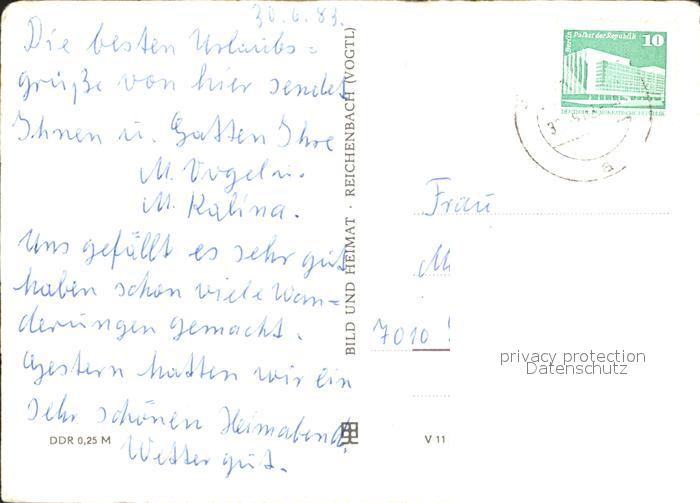 30.6.83.
Die besten Urlaubs=
grüße von hier sendet
Ihnen u. Gatten Ihre
M. Vogel u.
M. Kalina.
Uns gefällt es sehr gut
haben schon viele Wan-
derungen gemacht.
Gestern hatten wir ein
sehr schönen Heimabend.
Wetter gut.
DDR 0,25 M
BILD UND HEIMAT · REICHENBACH (VOGTL)
V 11
Berlin Palast der Republik
10
DEUTSCHE DEMOKRATISCHE REPUBLIK
a
Frau
M
7010
privacy protection
Datenschutz